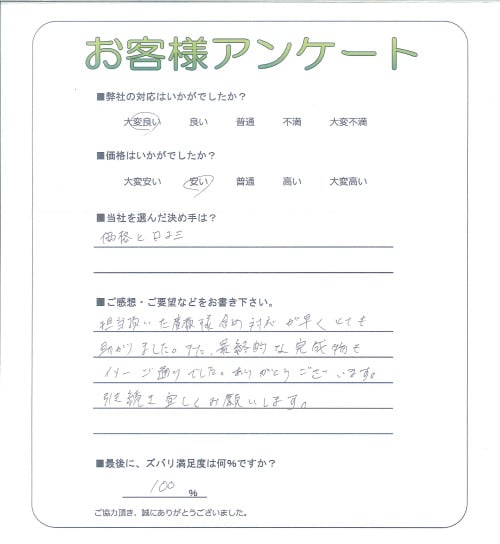 お客様アンケート
■弊社の対応はいかがでしたか？
大変良い 良い 普通 不満 大変不満
■価格はいかがでしたか？
大変安い 安い 普通 高い 大変高い
■当社を選んだ決め手は？
価格と口コミ
■ご感想・ご要望などをお書き下さい。
担当頂いた 様含め対応が早くとても
助かりました。また、最終的な完成物も
イメージ通りでした。ありがとうございます。
引き続き宜しくお願いします。
■最後に、ズバリ満足度は何%ですか？
100 %
ご協力頂き、誠にありがとうございました。